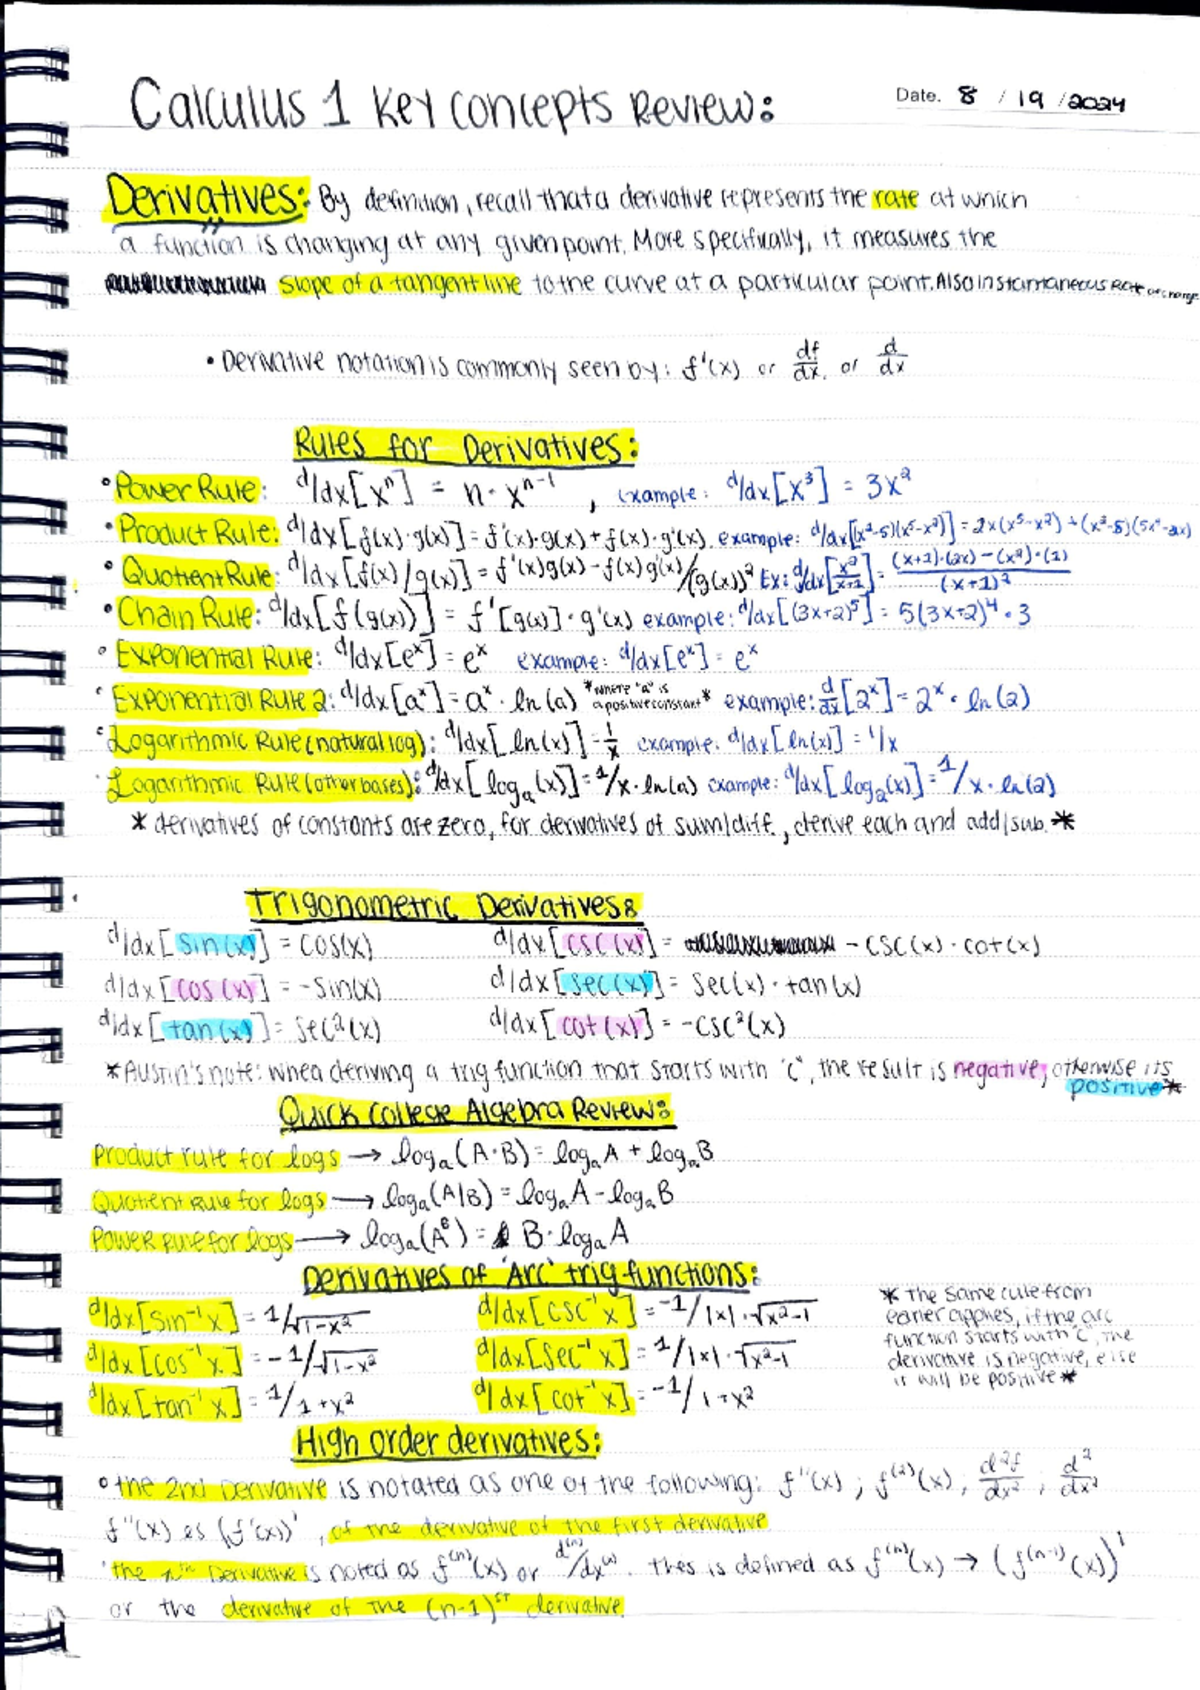 Calculus 1 Key Concepts Review:
Date. 8 / 19 / 2024
Derivatives: By definition, recall that a derivative represents the rate at which
a function is changing at any given point. More specifically, it measures the
slope of a tangent line to the curve at a particular point. Also instantaneous Rate of change
• Derivative notation is commonly seen by: f'(x) or df/dx, or d/dx
Rules for Derivatives:
• Power Rule: d/dx[xⁿ] = n · xⁿ⁻¹, example: d/dx[x³] = 3x²
• Product Rule: d/dx[f(x)·g(x)] = f'(x)·g(x) + f(x)·g'(x). example: d/dx[(x²-5)(x⁵-x²)] = 2x(x⁵-x²) + (x²-5)(5x⁴-2x)
• Quotient Rule: d/dx[f(x)/g(x)] = f'(x)g(x) - f(x)g'(x)/(g(x))² Ex: d/dx[x²/x+1] = (x+1)·(2x) - (x²)·(1)/(x+1)²
• Chain Rule: d/dx[f(g(x))] = f'[g(x)]·g'(x) example: d/dx[(3x+2)⁵] = 5(3x+2)⁴ · 3
• Exponential Rule: d/dx[eˣ] = eˣ example: d/dx[eˣ] = eˣ
• Exponential Rule 2: d/dx[aˣ] = aˣ · ln(a) *where "a" is a positive constant* example: d/dx[2ˣ] = 2ˣ · ln(2)
• Logarithmic Rule (natural log): d/dx[ln(x)] = 1/x example: d/dx[ln(x)] = 1/x
• Logarithmic Rule (other bases): d/dx[logₐ(x)] = 1/x·ln(a) example: d/dx[log₂(x)] = 1/x·ln(2)
* derivatives of constants are zero, for derivatives of sum/diff., derive each and add/sub. *
Trigonometric Derivatives:
d/dx[sin(x)] = cos(x) d/dx[csc(x)] = -csc(x)·cot(x)
d/dx[cos(x)] = -sin(x) d/dx[sec(x)] = sec(x)·tan(x)
d/dx[tan(x)] = sec²(x) d/dx[cot(x)] = -csc²(x)
*Austin's note: when deriving a trig function that starts with "c", the result is negative, otherwise its
positive*
Quick College Algebra Review:
Product rule for logs → logₐ(A·B) = logₐA + logₐB
Quotient Rule for logs → logₐ(A/B) = logₐA - logₐB
Power Rule for logs → logₐ(Aᴮ) = B·logₐA
Derivatives of 'Arc' trig functions:
d/dx[sin⁻¹x] = 1/√1-x² d/dx[csc⁻¹x] = -1/|x|·√x²-1
d/dx[cos⁻¹x] = -1/√1-x² d/dx[sec⁻¹x] = 1/|x|·√x²-1
d/dx[tan⁻¹x] = 1/1+x² d/dx[cot⁻¹x] = -1/1+x²
* The same rule from
earlier applies, if the arc
function starts with "c", the
derivative is negative, else
it will be positive *
High order derivatives:
• the 2nd Derivative is notated as one of the following: f''(x) ; f⁽²⁾(x), d²f/dx² ; d²/dx²
f''(x) as (f'(x))', of the derivative of the first derivative
• the nᵗʰ Derivative is noted as f⁽ⁿ⁾(x) or d⁽ⁿ⁾/dx⁽ⁿ⁾. This is defined as f⁽ⁿ⁾(x) → (f⁽ⁿ⁻¹⁾(x))'
or the derivative of the (n-1)ˢᵗ derivative.